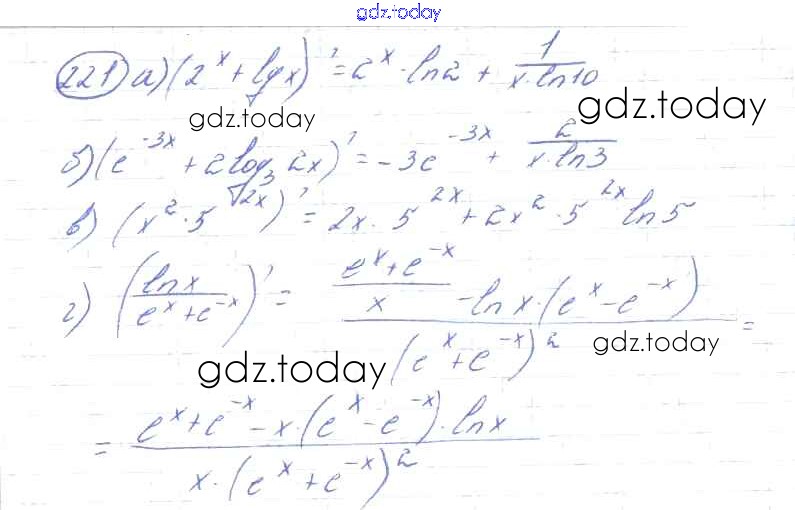 gdz.today
221 а) (2^x + lg x)' = 2^x · ln2 + 1/(x·ln10)
gdz.today
gdz.today
б) (e^(-3x) + 2log_3 2x)' = -3e^(-3x) + 2/(x·ln3)
в) (x^2 · 5^(2x))' = 2x · 5^(2x) + 2x^2 · 5^(2x) ln5
г) (ln x/(e^x + e^(-x)))' = ((e^x + e^(-x))/x - ln x·(e^x - e^(-x)))/(e^x + e^(-x))^2 =
gdz.today
gdz.today
= (e^x + e^(-x) - x·(e^x - e^(-x))·ln x)/(x·(e^x + e^(-x))^2)